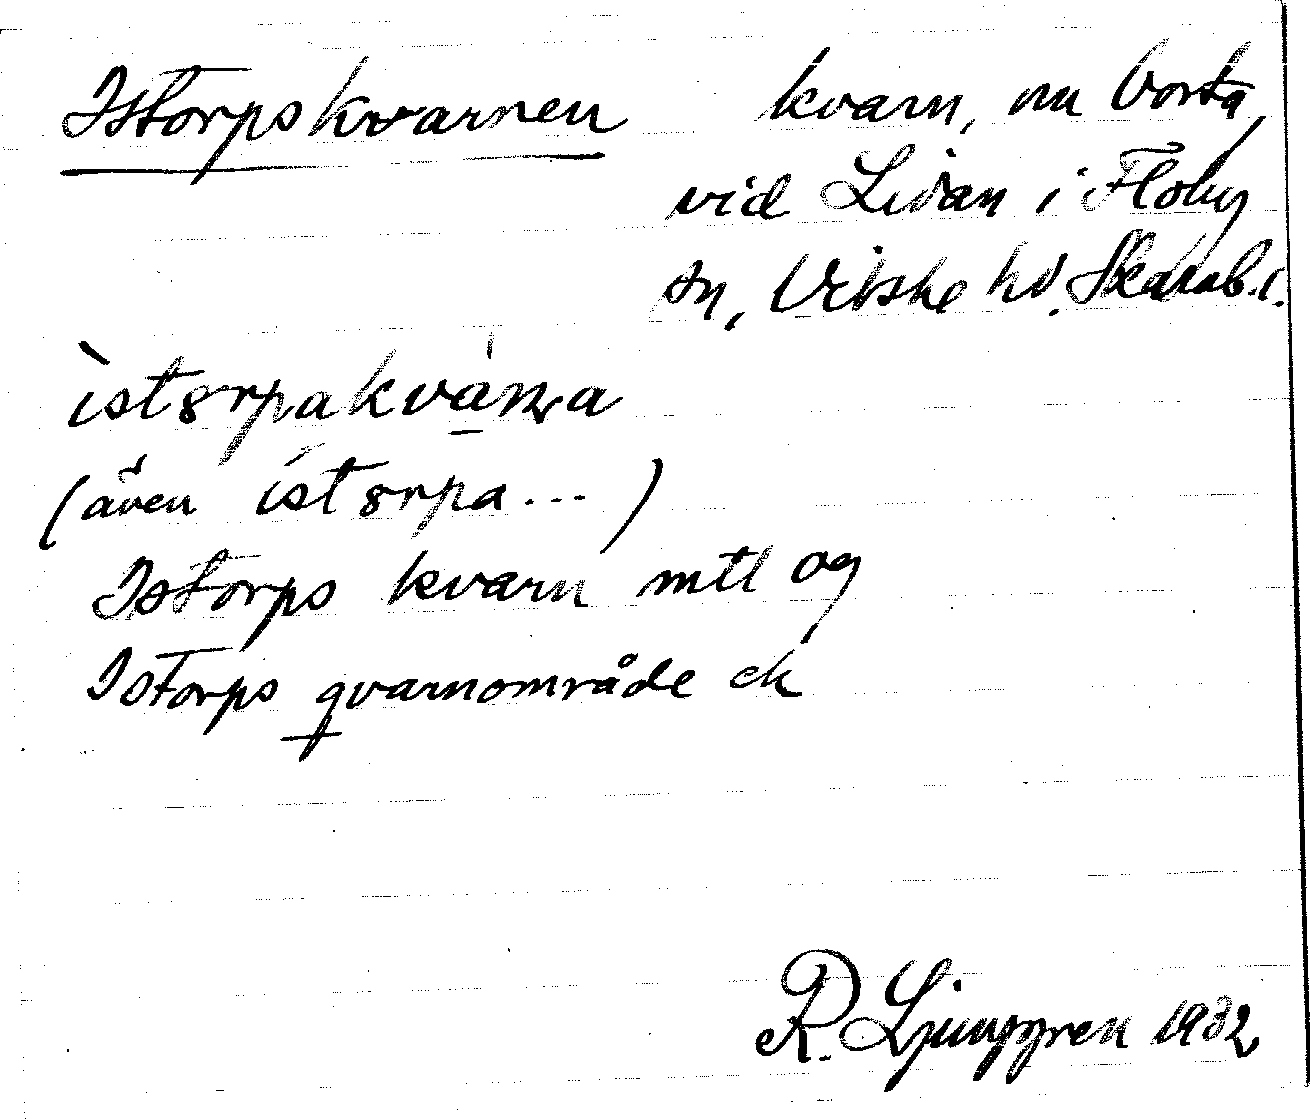 Istorpskvarnen
kvarn, nu borta,
vid Lidan i Floby
sn, Vilske hd. Skarab. l.
ìst8rpakvánṛa
(även íst8rpa... )
Istorps kvarn mtl og
Istorps qvarnområde ek
R. Ljunggren 1932